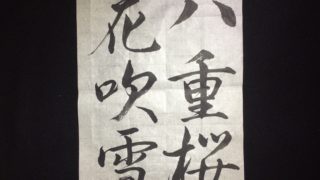 八重桜
花吹雪